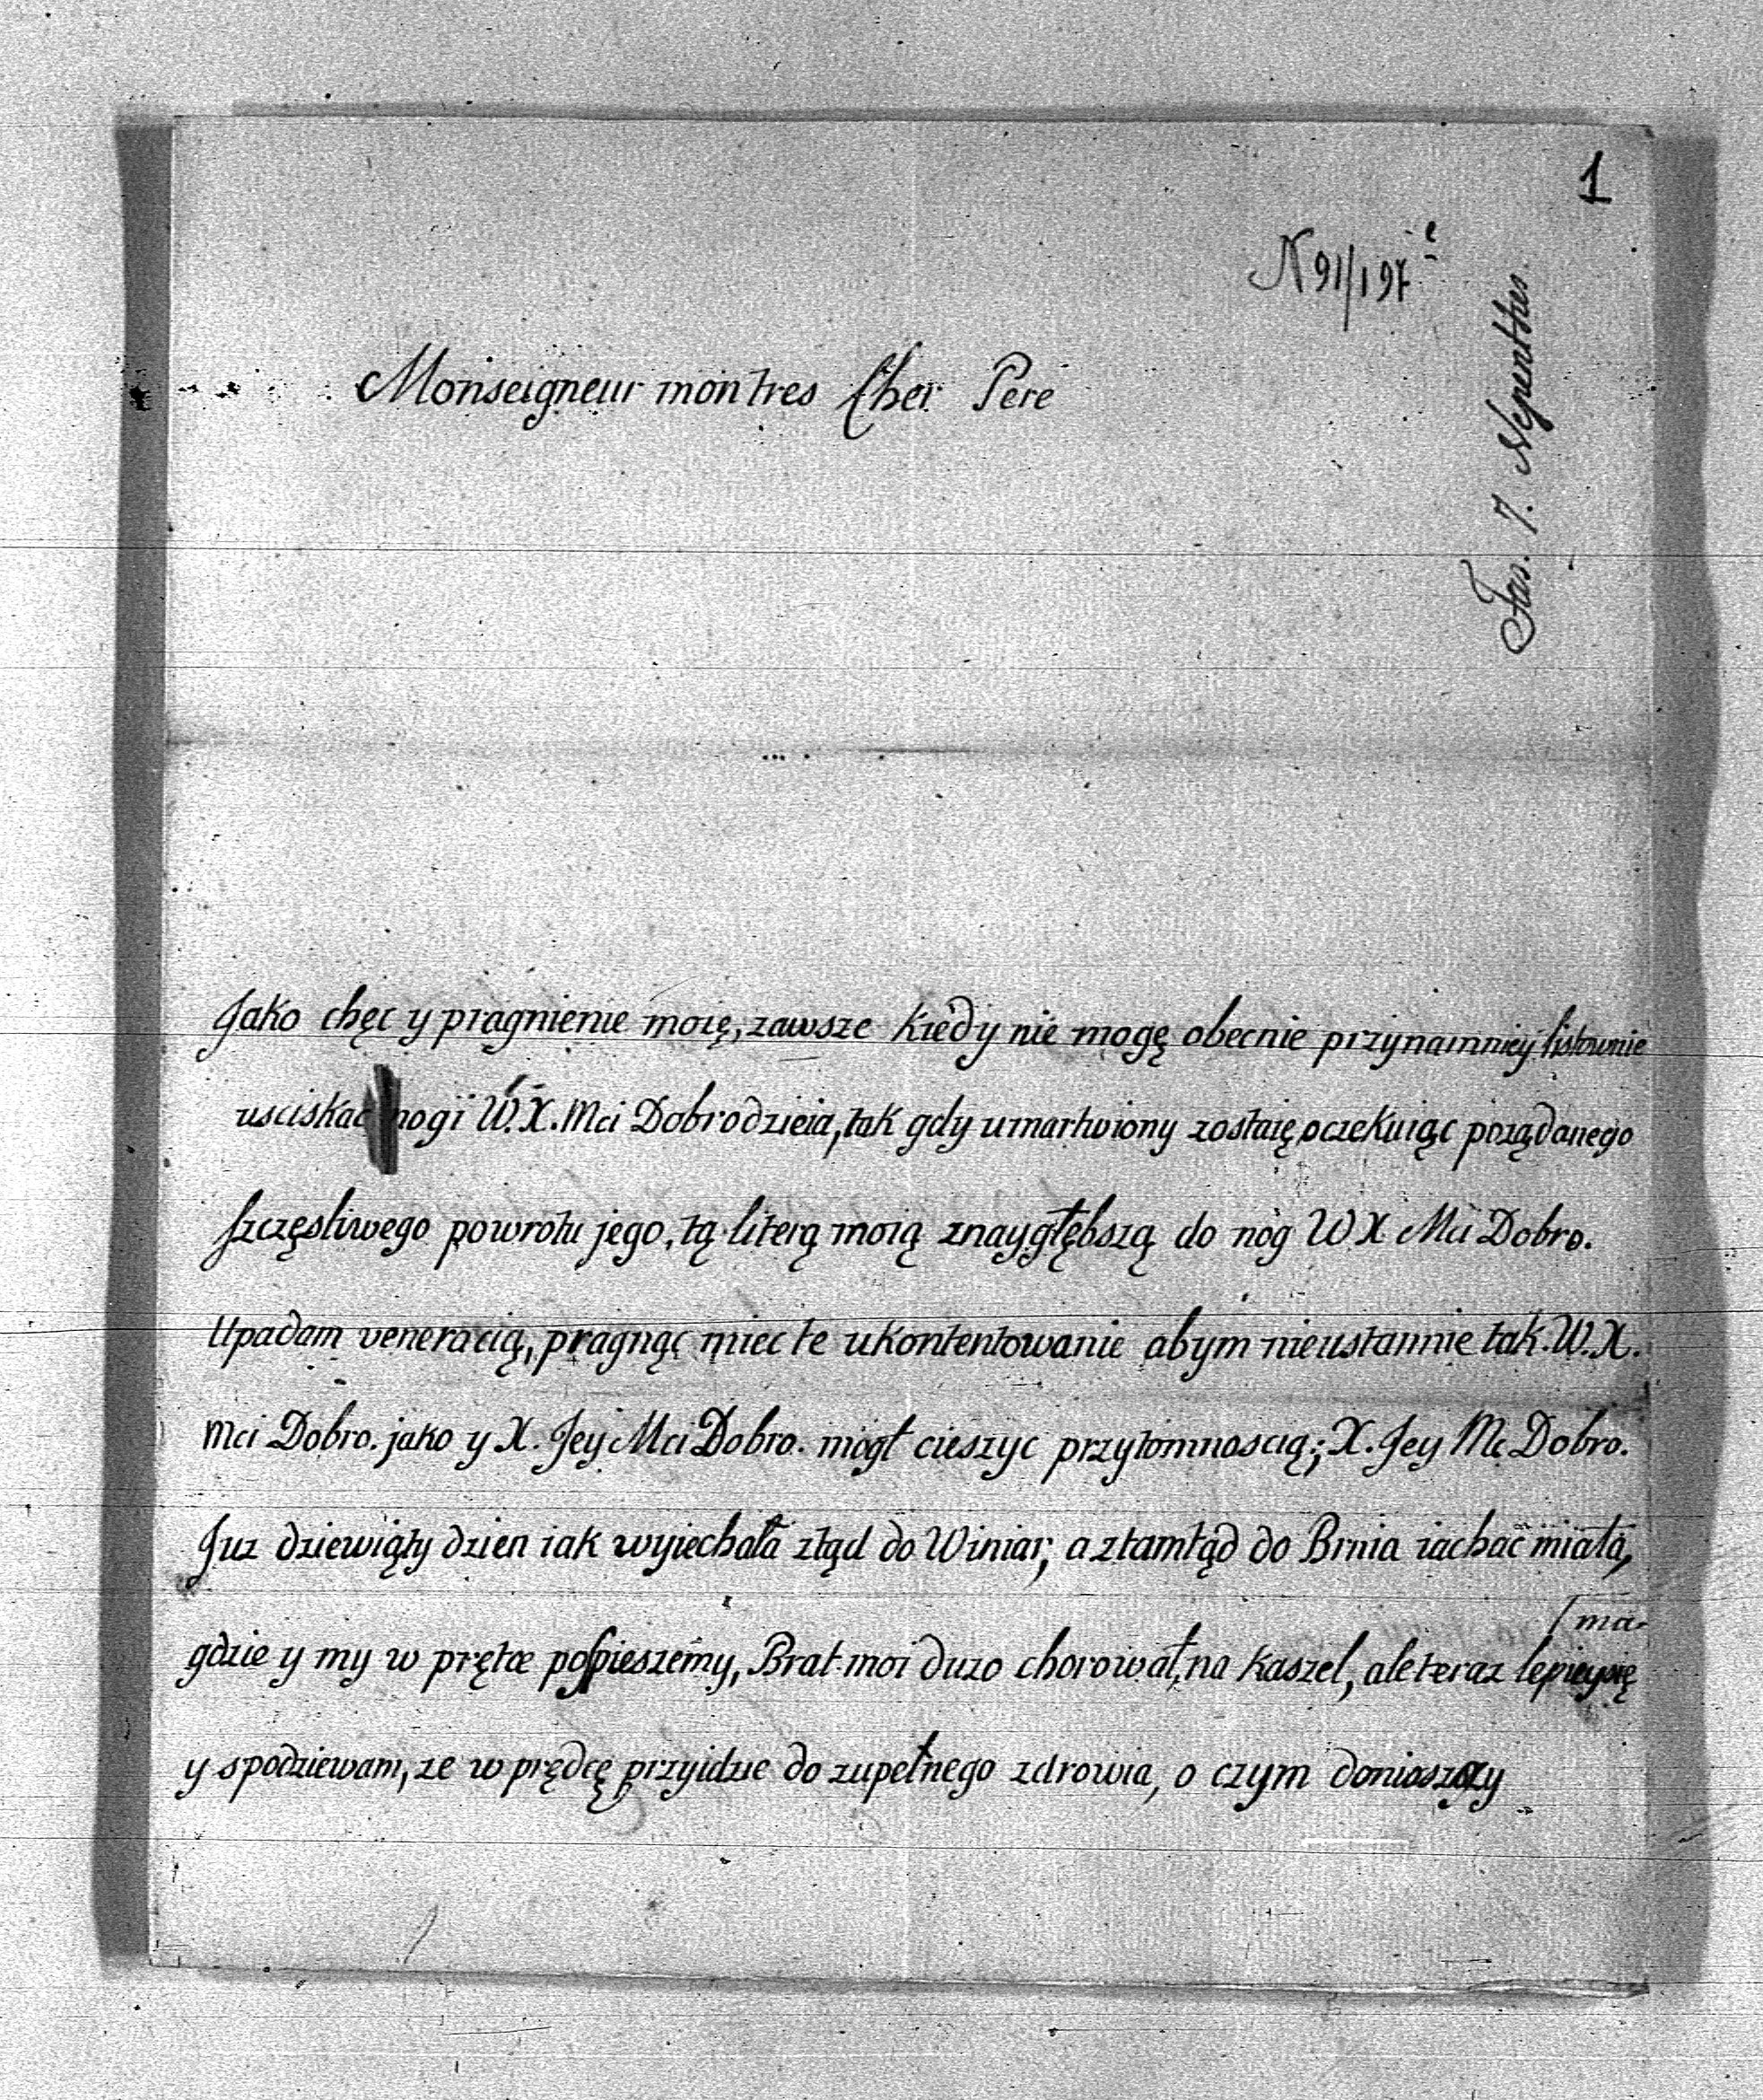 1
N 91/197
Fas. 7. Nepenthes.
Monseigneur mon tres Cher Pere
Jako chęc y pragnienie moię, zawsze kiedy nie mogę obecnie przynamniey listownie
usciskac nogi W. X. Mci Dobrodzieia, tak gdy umartwiony zostaię oczekuiąc poządanego
szczęsliwego powrotu jego, tą literą moią znaygłębszą do nog W X Mci Dobro.
Upadam veneracią, pragnąc miec te ukontentowanie abym nieustannie tak W. X.
Mci Dobro. jako y X. Jey Mci Dobro. mogł cieszyc przytomnoscią; X. Jey Mc Dobro.
Juz dziewiąty dzien iak wyiechała ztąd do Winiar, a ztamtąd do Brnia iachac miała,
gdzie y my w prętce pospieszemy, Brat moi duzo chorował, na kaszel, ale teraz lepiey się
ma
y spodziewam, ze w prędcę przyidzie do zupełnego zdrowia, o czym doniosszy